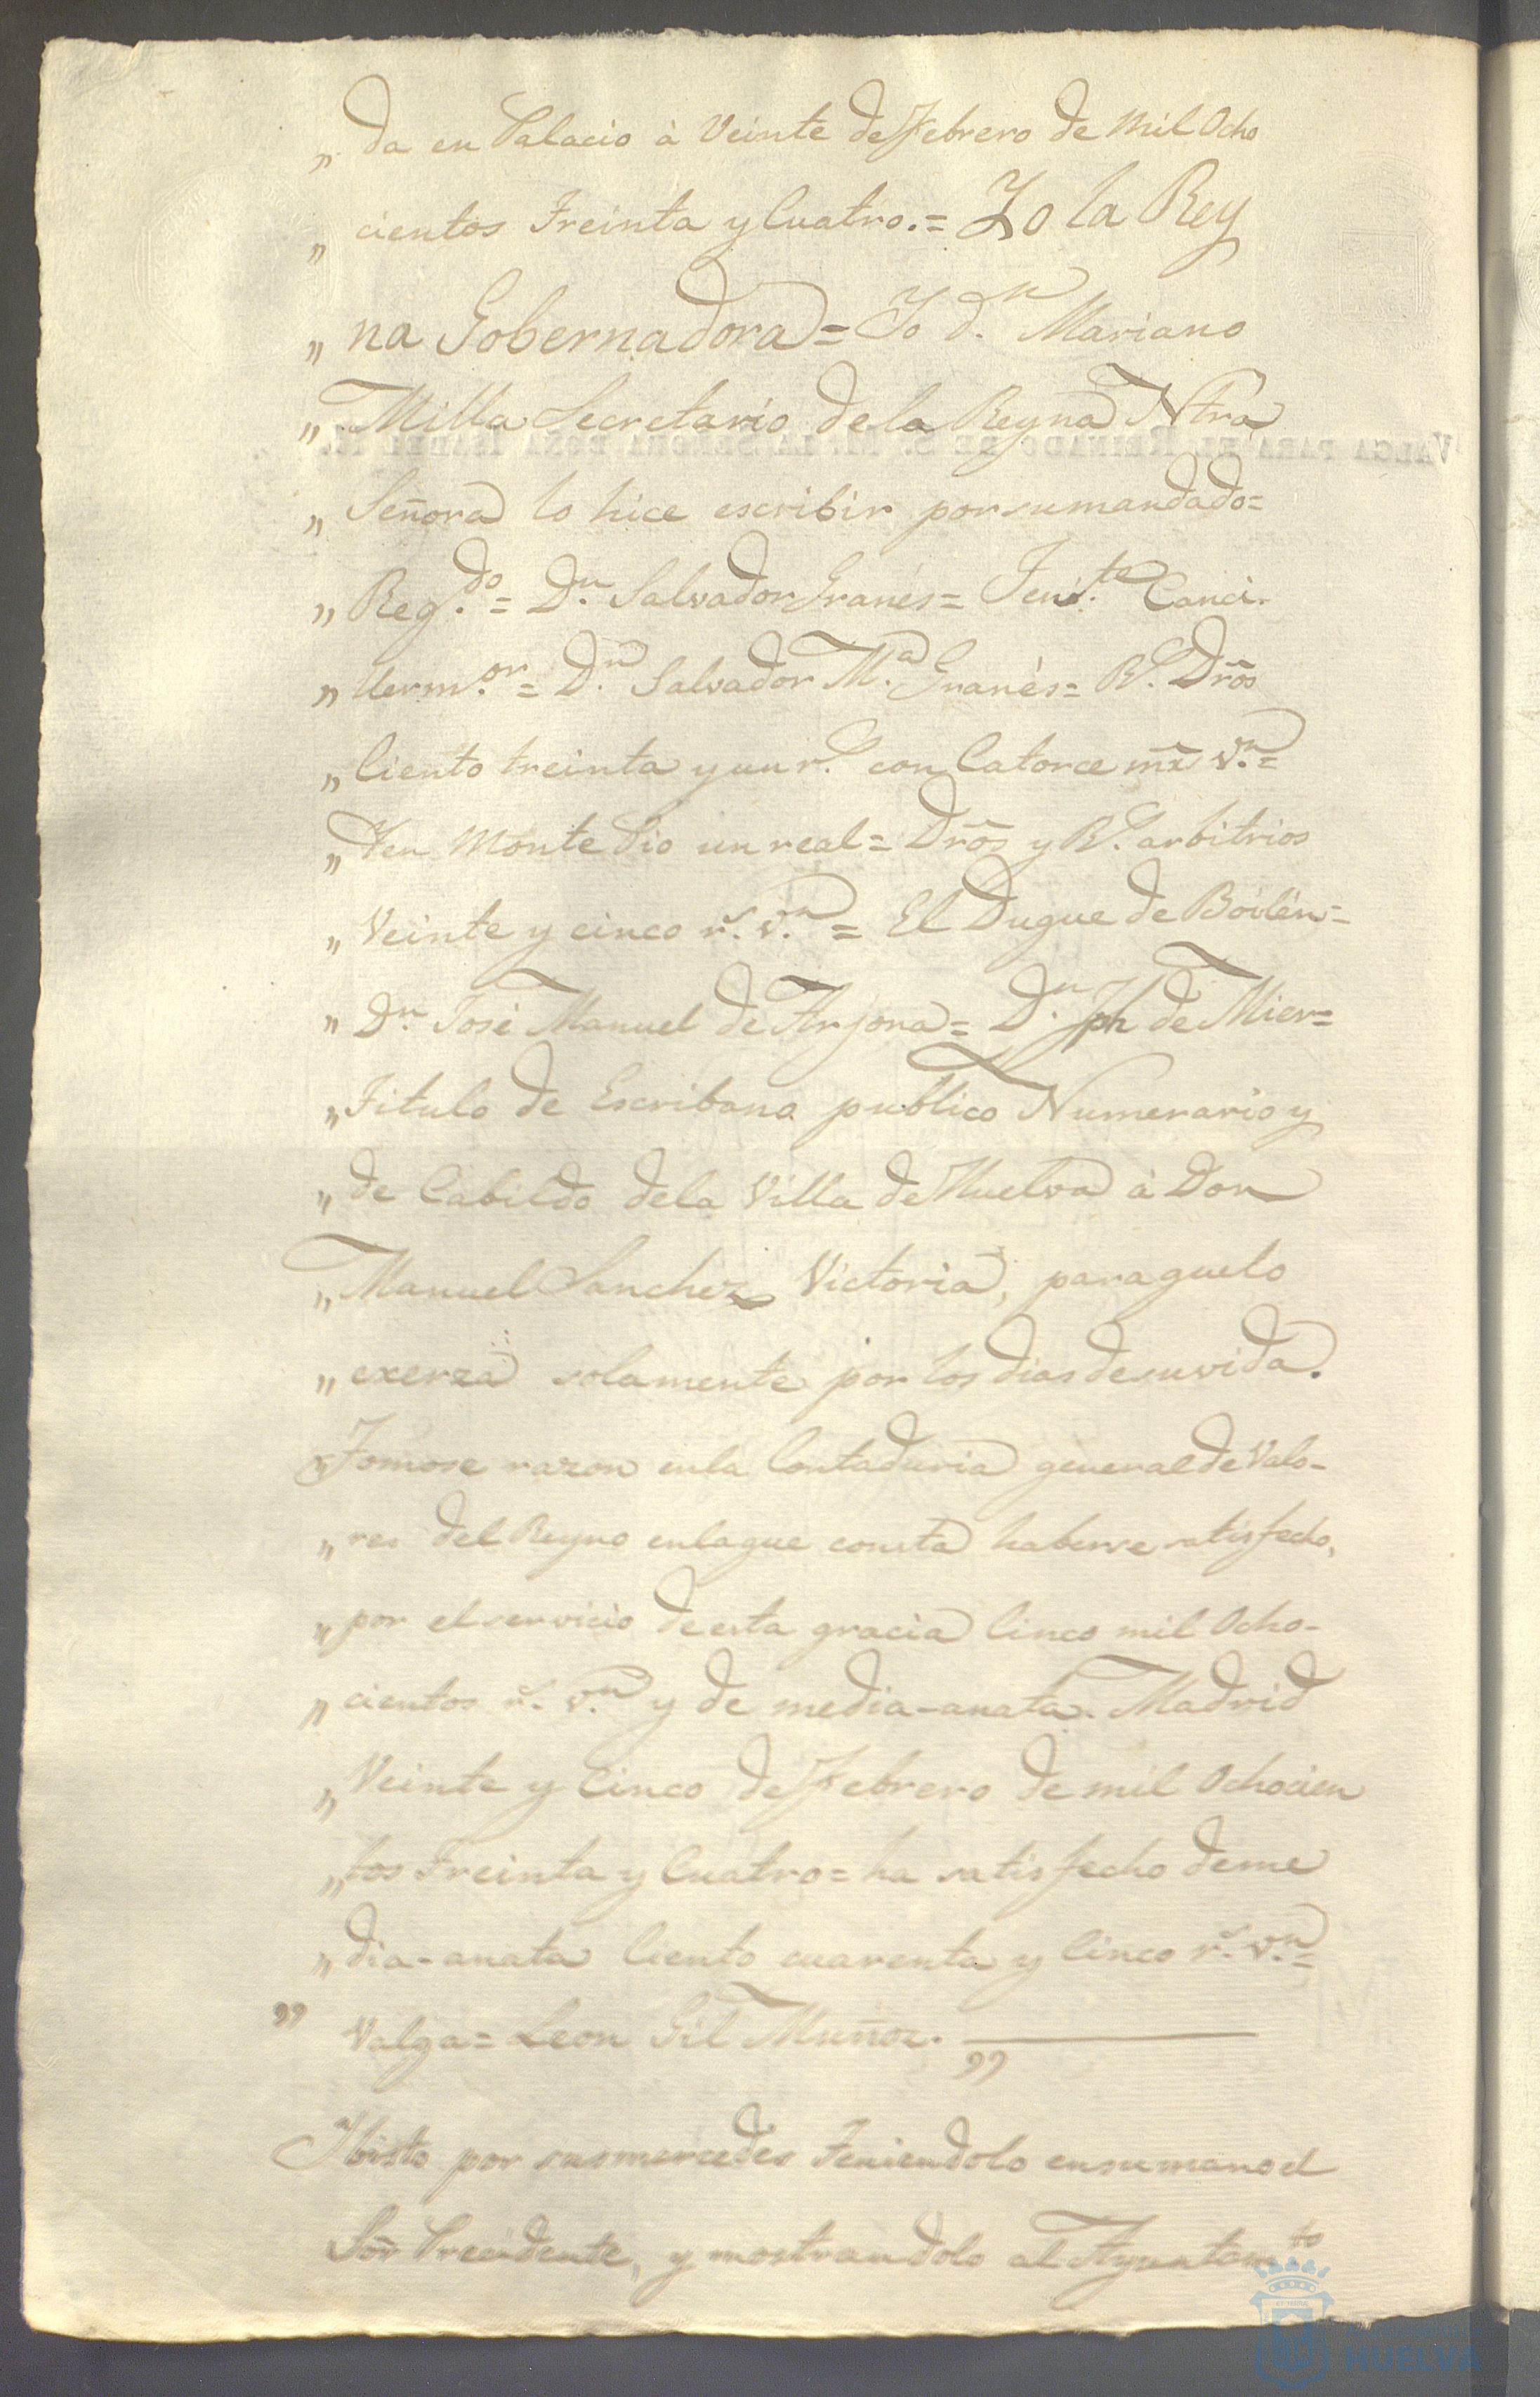 „ da en Palacio à Veinte de Febrero de Mil Ocho
„ cientos Treinta y Cuatro.= Yo la Rey
„ na Gobernadora= Yo d.n Mariano
„ Milla Secretario de la Reyna Ntra
„ Señora lo hice escribir por su mandado=
„ Reg.do = D.n Salvador Granés= Ten.te Canci-
„ llerm.or = D.n Salvador M.a Granés= R.s Dr̃os
„ Ciento treinta y un r.s con Catorce mr̃s v.n=
„ Y en Monte Pio un real= Dr̃os y R.s arbitrios
„ Veinte y cinco r.s v.n = El Duque de Bailén=
„ D.n José Manuel de Arjona= D.n Jph de Mier=
„ Titulo de Escribano publico Numerario y
„ de Cabildo de la Villa de Huelva à Don
„ Manuel Sanchez Victoria, para que lo
„ exerza solamente por los dias de su vida.
„ Tomose razon en la Contaduria general de Valo-
„ res del Reyno en la que consta haberse satisfecho,
„ por el servicio de esta gracia Cinco mil Ocho-
„ cientos r.s v.n y de media-anata. Madrid
„ Veinte y Cinco de Febrero de mil Ochocien
„ tos Treinta y Cuatro= ha satisfecho de me
„ dia-anata Ciento cuarenta y Cinco r.s v.n=
„ Valga= Leon Gil Muñoz. ——— „
Y bisto por sus mercedes Teniendolo en su mano el
Sor̃ Precidente, y mostrandolo al Ayuntam.to
VALGA PARA EL REINADO DE S. M. LA SEÑORA DOÑA ISABEL II.
HUELVA